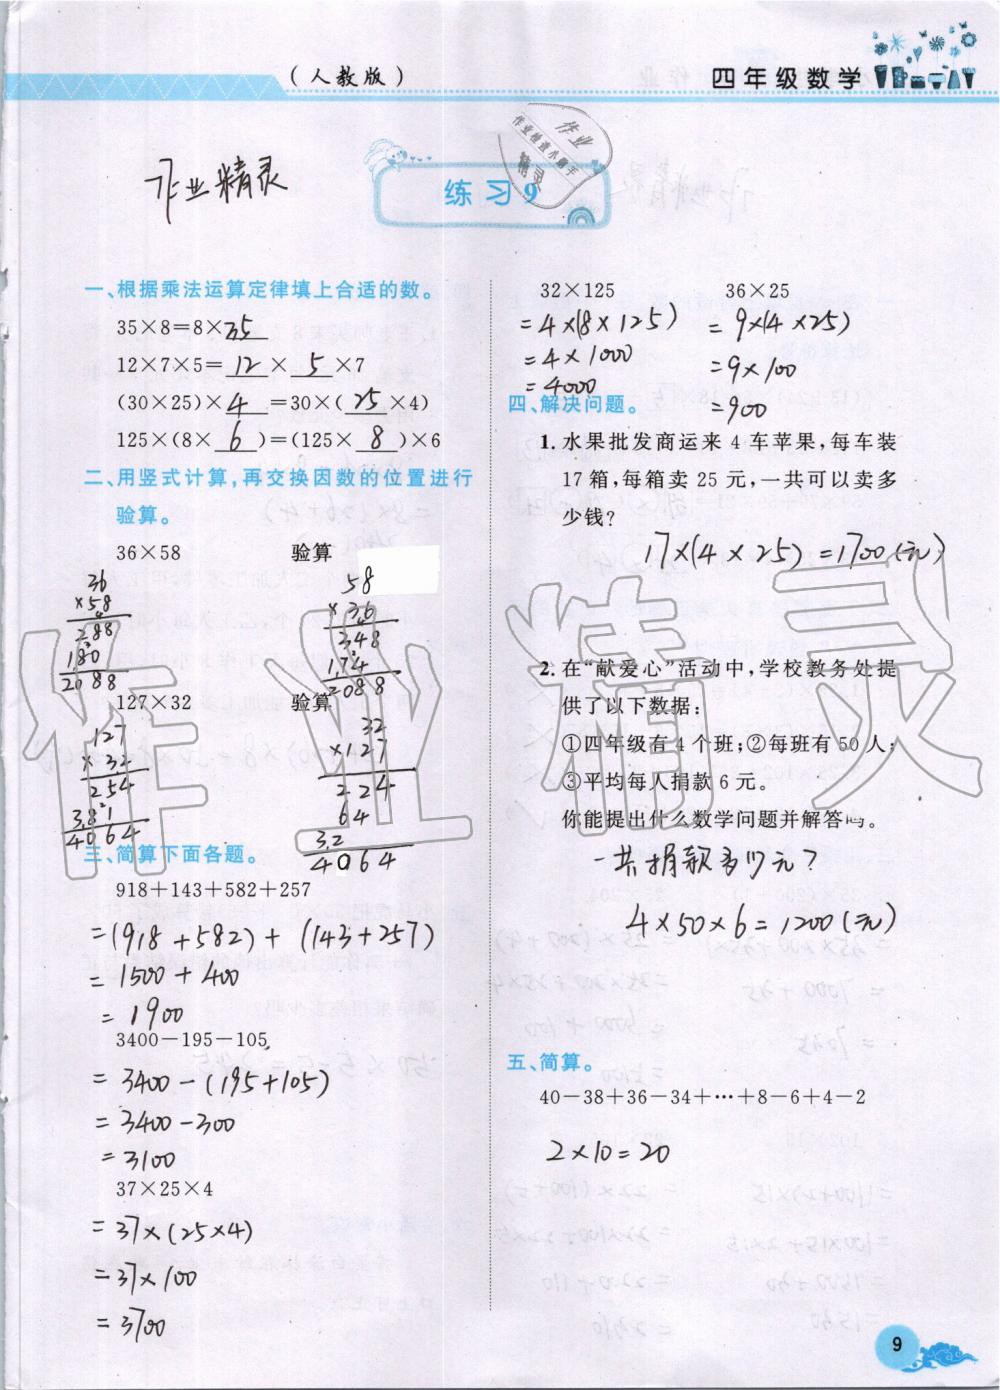 (人教版)
四年级数学
作业精灵
作业
作业检查小助手
精灵
练习9
一、根据乘法运算定律填上合适的数。
35×8=8×35
12×7×5=12×5×7
(30×25)×4=30×(25×4)
125×(8×6)=(125×8)×6
二、用竖式计算,再交换因数的位置进行
验算。
36×58 验算
36
×58
288
180
2088
58
×36
348
174
2088
127×32 验算
127
×32
254
381
4064
32
×127
224
64
32
4064
三、简算下面各题。
918+143+582+257
=(918+582)+(143+257)
=1500+400
=1900
3400-195-105
=3400-(195+105)
=3400-300
=3100
37×25×4
=37×(25×4)
=37×100
=3700
32×125
=4×(8×125)
=4×1000
=4000
36×25
=9×(4×25)
=9×100
=900
四、解决问题。
1.水果批发商运来4车苹果,每车装
17箱,每箱卖25元,一共可以卖多
少钱?
17×(4×25)=1700(元)
2.在“献爱心”活动中,学校教务处提
供了以下数据:
①四年级有4个班;②每班有50人;
③平均每人捐款6元。
你能提出什么数学问题并解答吗。
一共捐款多少元?
4×50×6=1200(元)
五、简算。
40-38+36-34+…+8-6+4-2
2×10=20
作业精灵
9